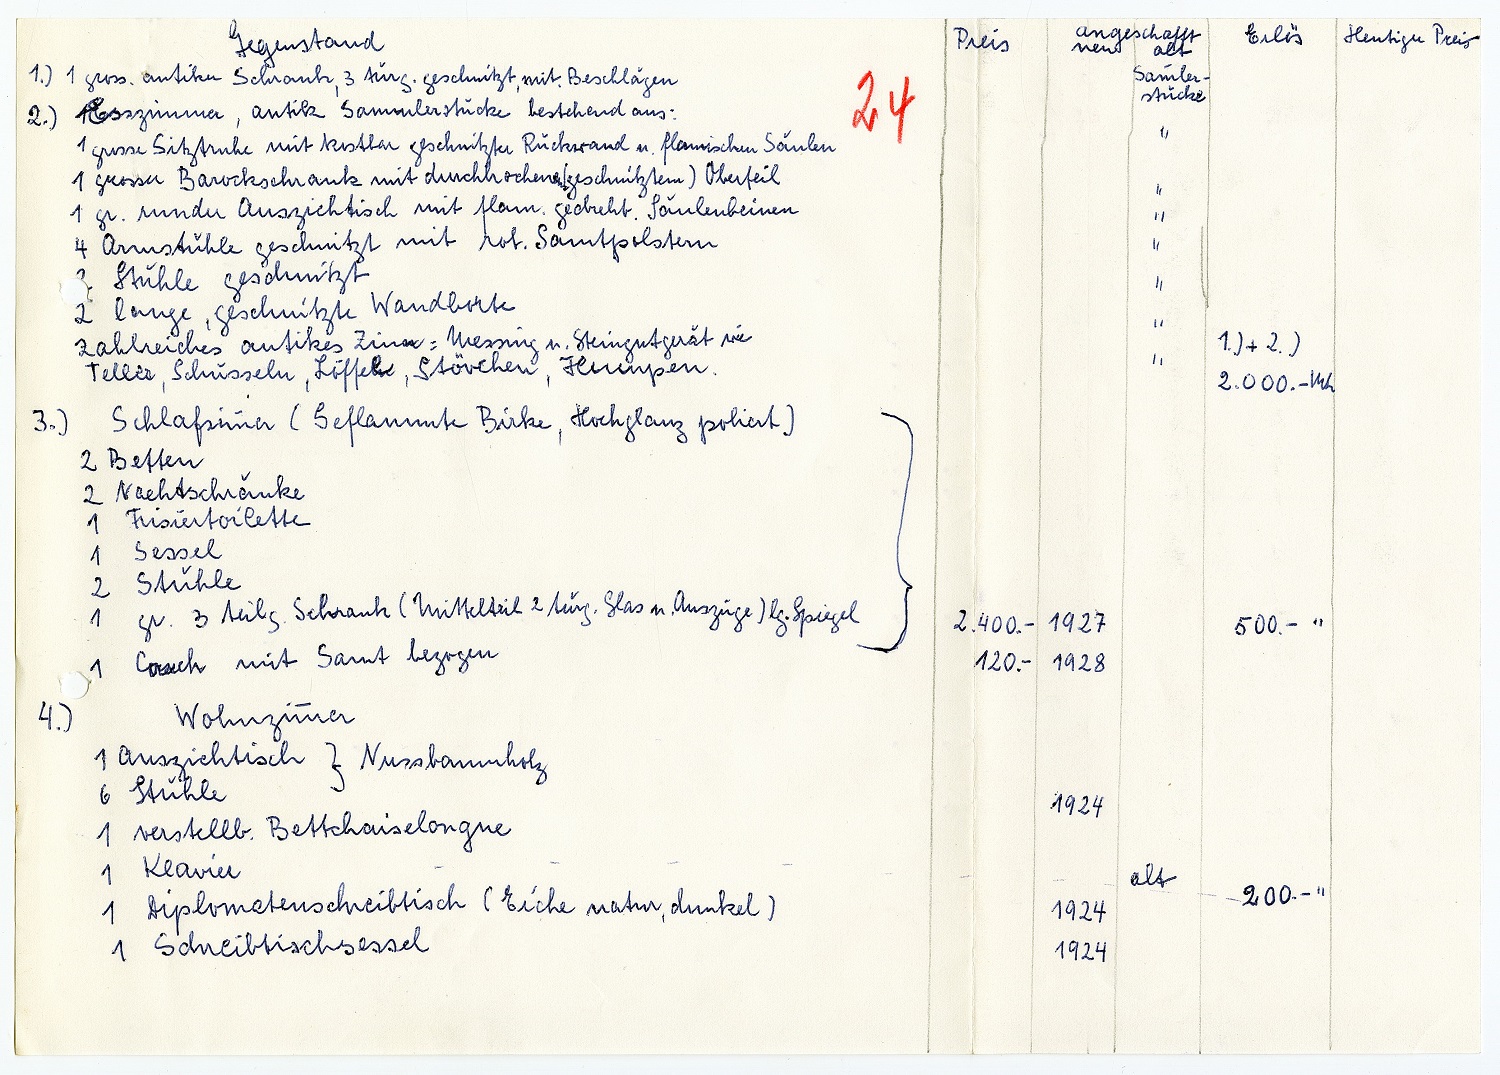 Gegenstand Preis angeschafft Erlös Heutiger Preis
neu alt
1.) 1 gross. antiker Schrank, 3 türg. geschnitzt, mit Beschlägen Sam̅ler-
stücke
24
2.) 1 Esszimmer, antik Sammlerstücke bestehend aus:
1 grosse Sitztruhe mit kostbar geschnitzter Rückwand u. flamischen Säulen "
1 grosser Barockschrank mit durchbrochenem (geschnitztem) Oberteil "
1 gr. runder Ausziehtisch mit flam. gedreht. Säulenbeinen "
4 Armstühle geschnitzt mit rot. Samtpolstern "
2 Stühle geschnitzt "
2 lange, geschnitzte Wandborte "
zahlreiches antikes Zinn = Messing u. Steingutgerät wie 1.) + 2.)
Teller, Schüsseln, Löffel, Stövchen, Humpen. " 2.000.- Mk
3.) Schlafzim̅er (Geflammte Birke, Hochglanz poliert)
2 Betten
2 Nachtschränke
1 Frisiertoilette
1 Sessel
2 Stühle
1 gr. 3 teilg. Schrank (Mittelteil 2 türg. Glas u. Auszüge) lg. Spiegel 2.400.- 1927 500.- "
1 Couch mit Samt bezogen 120.- 1928
4.) Wohnzim̅er
1 Ausziehtisch } Nussbaumholz
6 Stühle 1924
1 verstellb. Bettchaiselongue
1 Klavier - - - - - alt - 200.- "
1 Diplomatenschreibtisch (Eiche natur, dunkel) 1924
1 Schreibtischsessel 1924